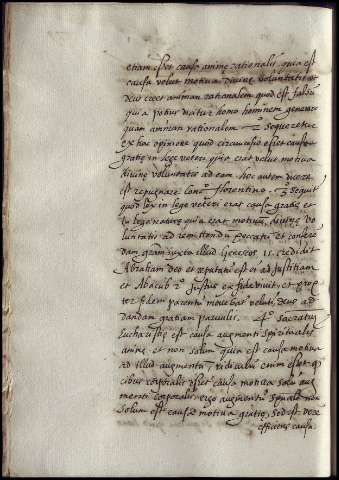 etiam esset causa animę rationalis, quia est
causa velut motiva divinę voluntatis ut
deus creet animam rationalem quod est falsum
quia potius dicitur homo hominem generare
quam animam rationalem 2º sequeretur
ex hac opinione quod circumcisio esset causa
gratię in lege veteri quia erat velut motiva
divinę voluntatis ad eam hoc autem dicere
est repugnare Conc.º florentino. 3º sequit
quod in lege veteri erat causa gratię et
in lege naturę quia erat motivum divinę vo
luntatis ad remittendum peccatum et conferen
dam gratiam iuxta illud Geneseos 15 credidit
Abraham deo et reputatum est ei ad Justitiam
et Abacub 2º Justus ex fide vivit, et prop
ter fidem parentum movebatur veluti deus ad
dandam gratiam parvulis. 4º sacratus
Eucharistię est causa augmenti spiritualis
animę et non solum quia est causa motiva
ad illud augmentum, ridiculum enim esset quod
cibus corporalis esset causa motiva solum aug
menti corporalis, ergo augmentum spirituale non
solum est causa motiva gratię, sed est verę
efficiens causa.